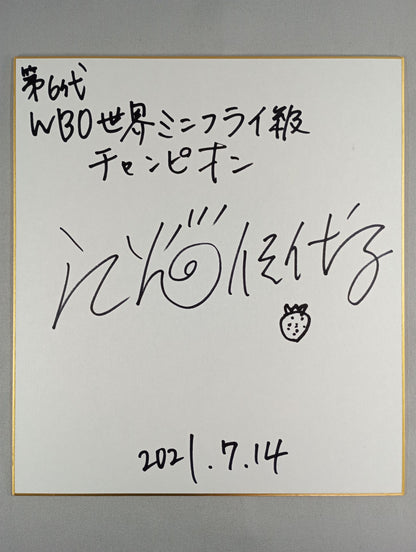 第6代
WBO世界ミニフライ級
チャンピオン
江畑佳代子
2021.7.14